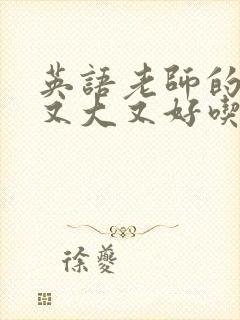 英語老師的
又大又好喫
徐夔